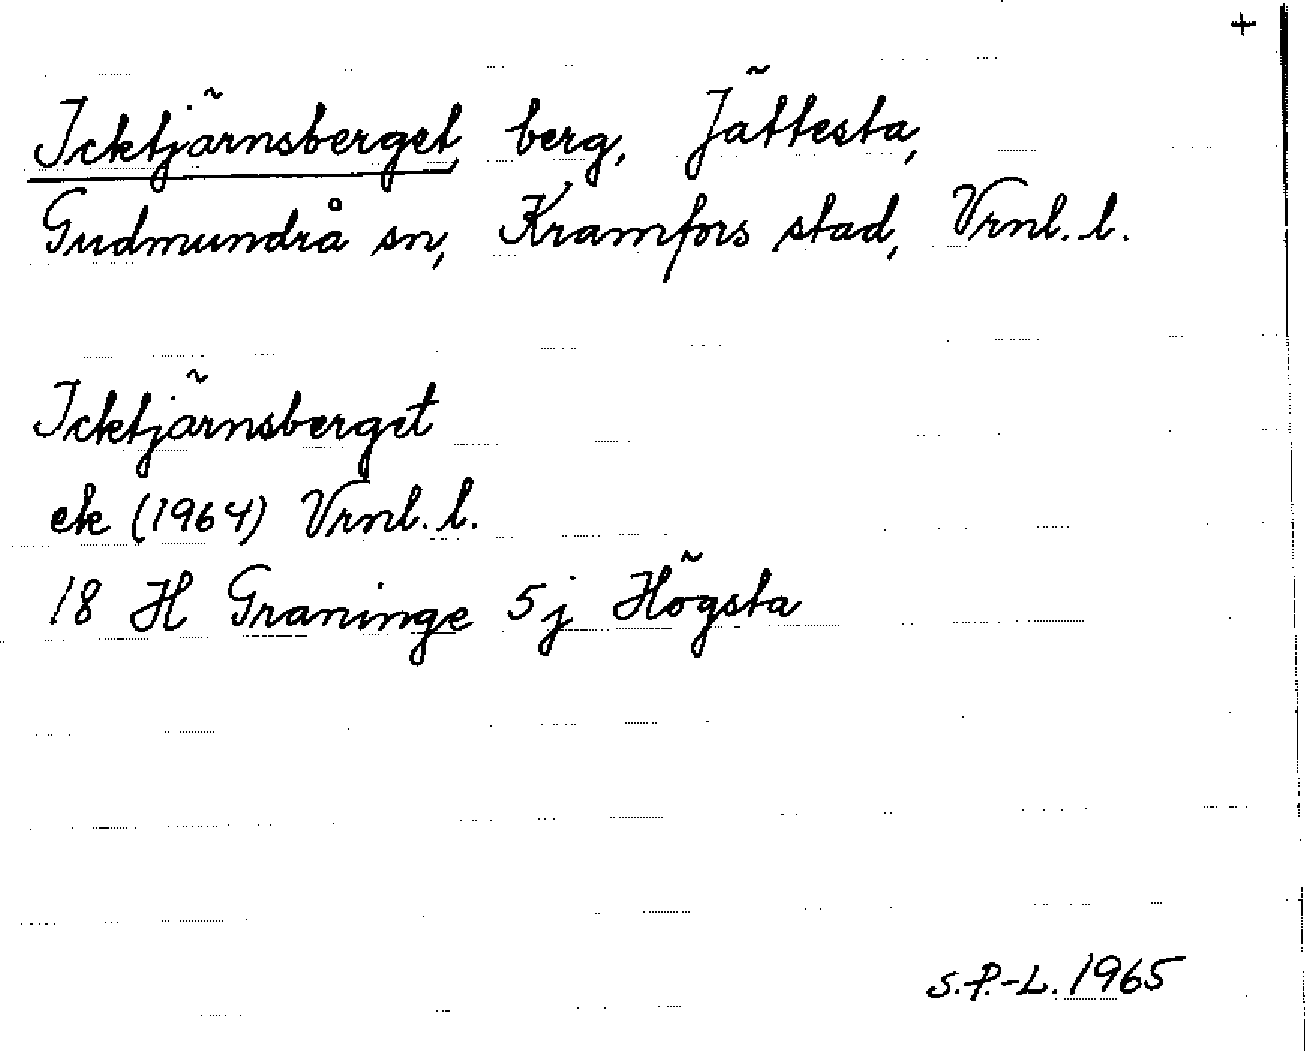 +
Icktjärnsberget, berg, Jättesta,
Gudmundrå sn, Kramfors stad, Vrnl. l.
Icktjärnsberget
ek (1964) Vrnl. l.
18 H Graninge 5j Högsta
S.P.-L. 1965